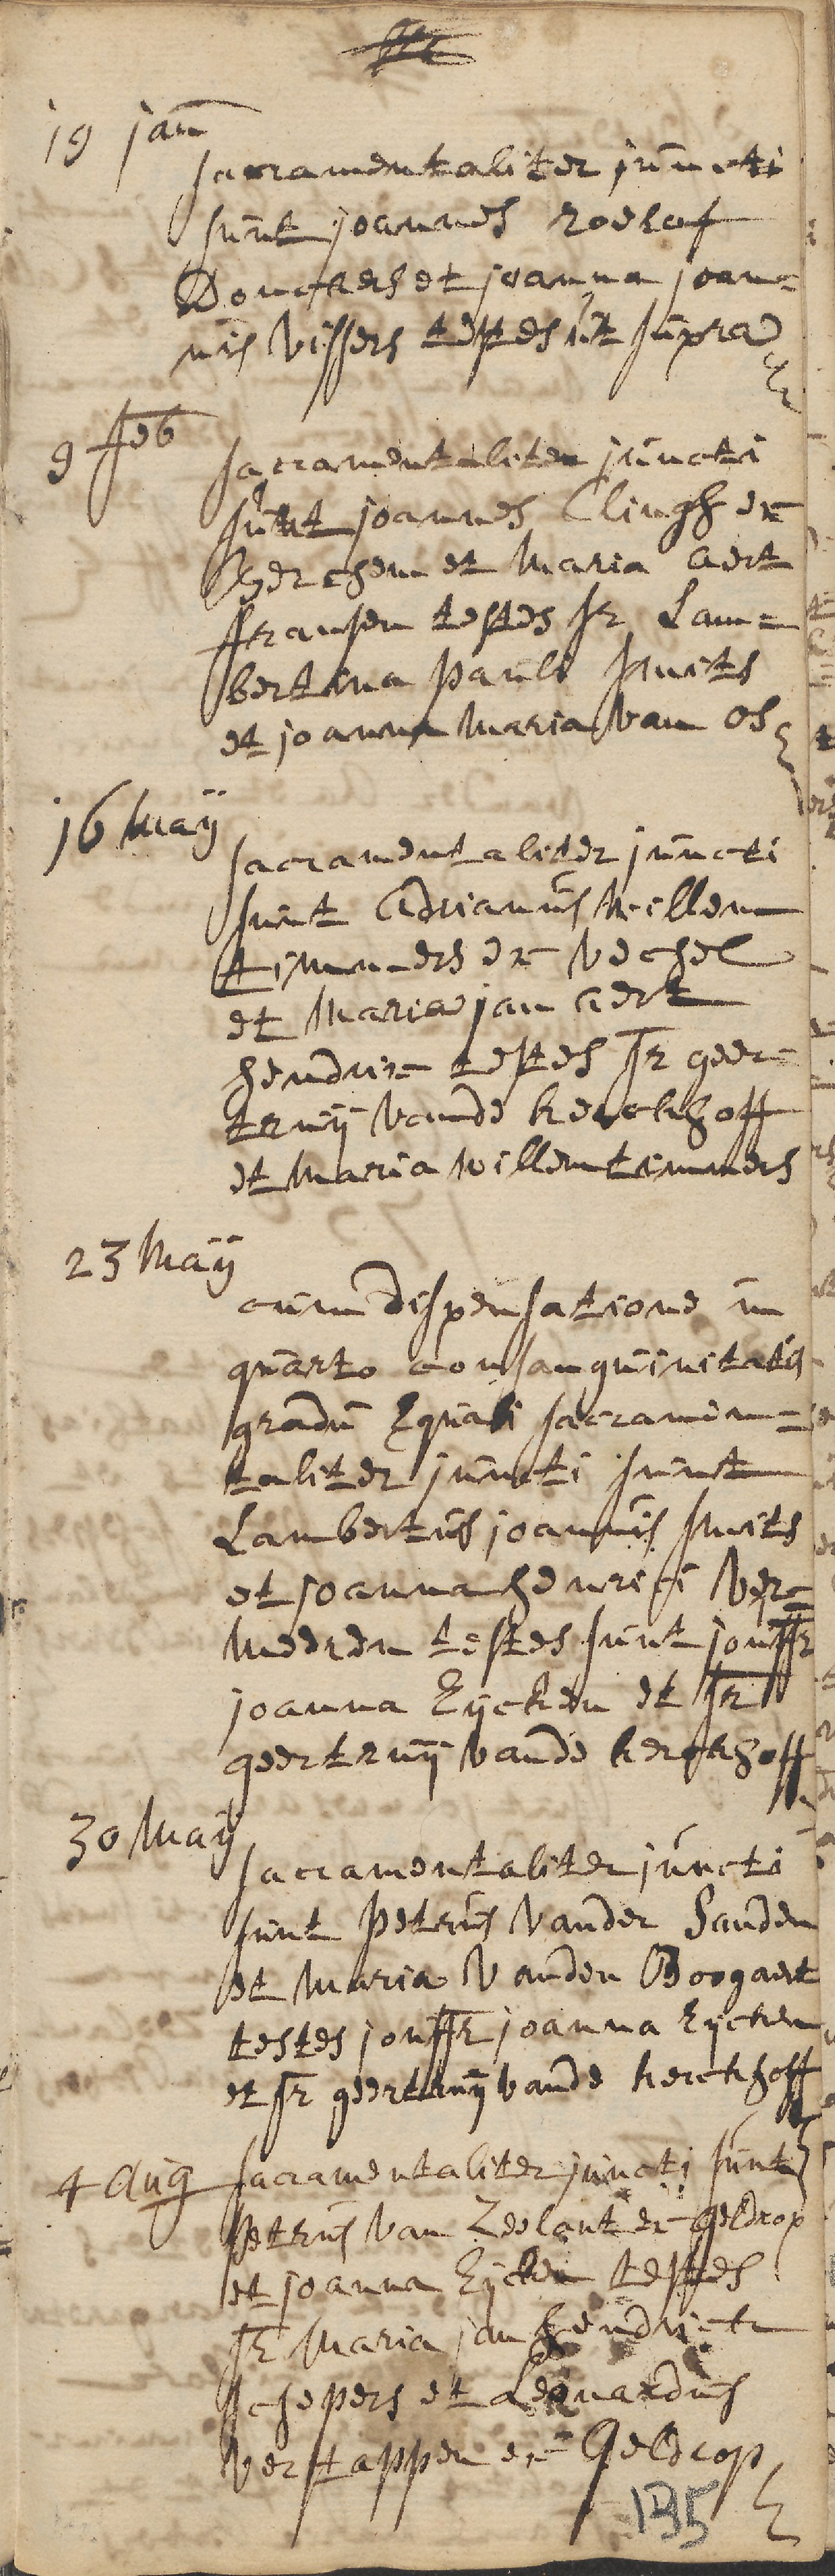 19 jan
sacramentaliter juncti
sunt joannes roelof
Donckers et joanna joan=
nis Vissers testes ut supra
9 feb
sacramentaliter juncti
sunt joannes Clingh ex
Berchem et Maria aert
fransen testes fr Lam=
bertina pauli smits
et joanna Maria van Os
16 Maÿ
sacramentaliter juncti
sunt Adrianus Willem
timmers ex Vechel
et Maria jan aert
hendrix testes fr geer=
truÿ vande kerckhoff
et Maria Willem timmers
23 Maÿ
cum dispensatione in
quarto consanguinitatis
gradu Equali sacramen=
taliter juncti sunt
Lambertus joannis smits
et joanna henrici Ver=
meeren testes sunt jouffr
joanna Eycken et fr
geertruÿ vande kerckhoff
30 Maÿ
sacramentaliter juncti
sunt petrus Vander Sanden
et Maria Vanden Boogaert
testes jouffr joanna Eycken
et fr geertruÿ vande kerckhoff
4 Aug sacramentaliter juncti sunt
petrus Van Zeelant ex geldrop
et joanna Eycken testes
fr Maria jan hendrick
schepers et Leonardus
Verstappen ex Geldrop
135